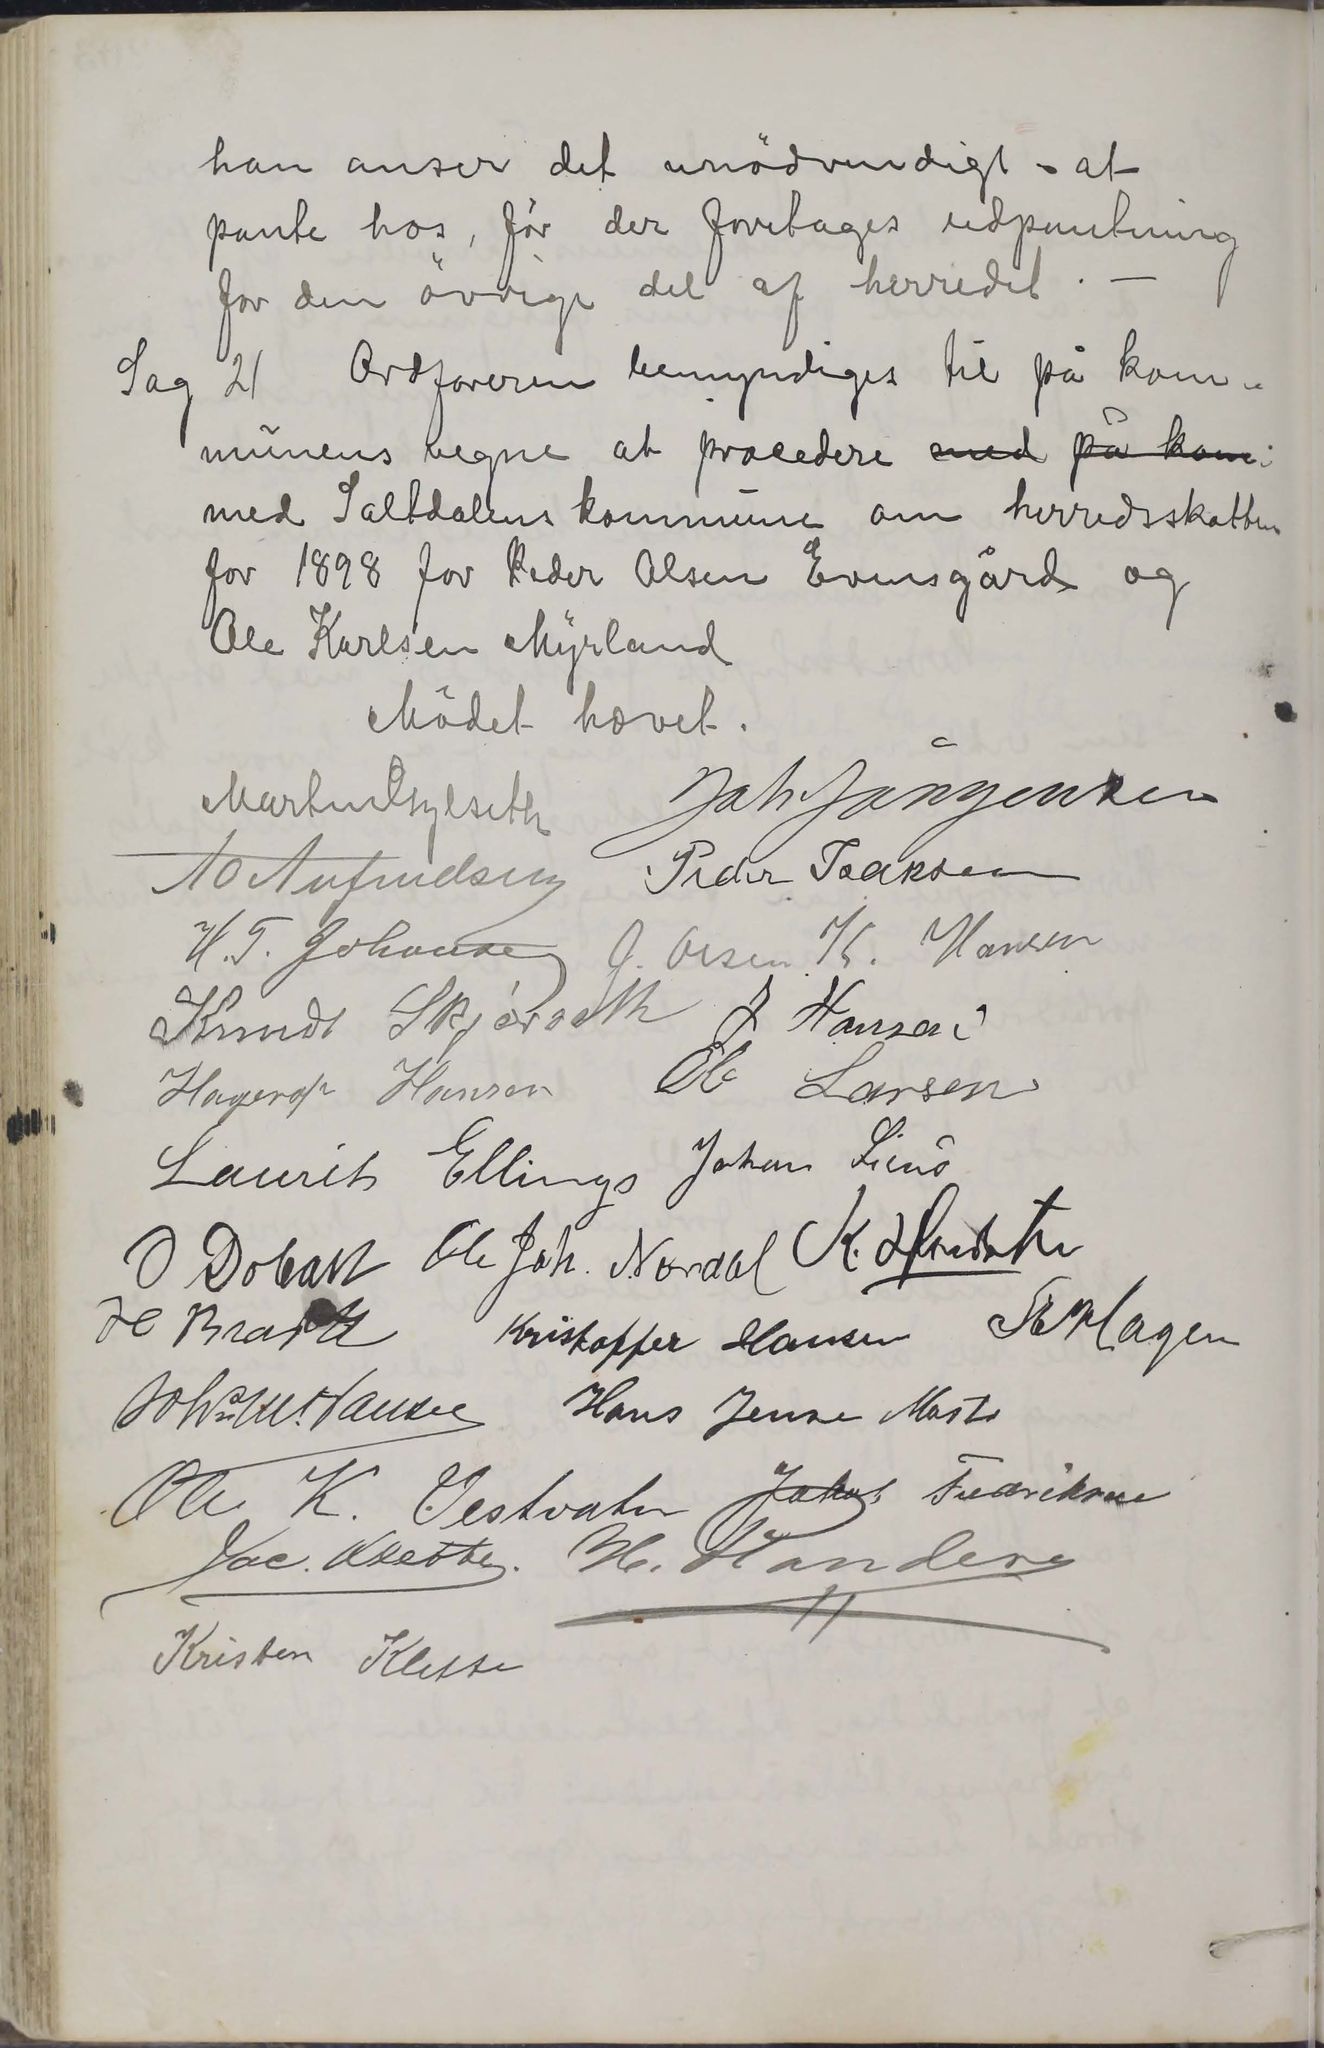 han anser det unödvendigt - at
pante hos, før der foretages udpantning
for den övrige del af herredet. —
Sag 21 Ordføreren bemyndiges til på kom-
munens vegne at procedere med på kom:
med Saltdalens kommune om herredsskatten
for 1898 for Peder Olsen Evensgård og
Ole Karlsen Myrland
Mödet hævet.
Joh Jörgensen
Peder Isaksen
H. T. Johansen J. Olsen K. Hansen
Knudt J Hansen
Hagerop Hansen Ole Larsen
Laurits Ellings Johan
O Ole Joh. Nordal K.
Kristoffer Hansen Hagen
Hansen Hans Jense
Ole K. Vestvatn Jakob Fredriksen
Jac. Kristen Klette